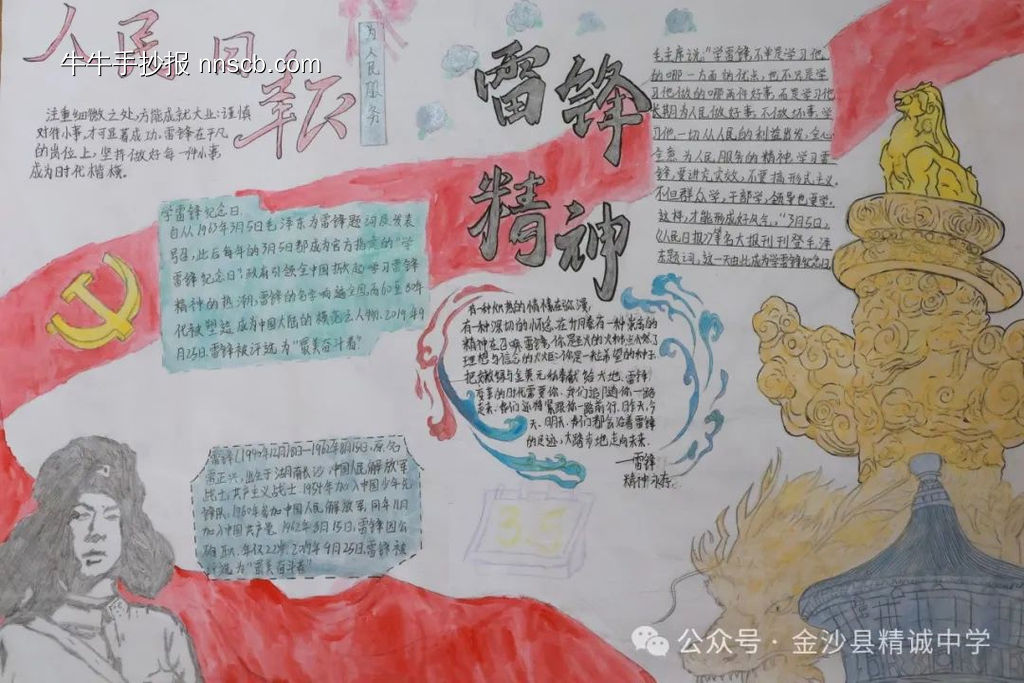 人民日报
牛牛手抄报 nhscb.com
为人民服务
注重细微之处,方能成就大业;谨慎
对待小事,才可显著成功。雷锋在平凡
的岗位上,坚持做好每一件小事,
成为时代楷模。
雷锋
精神
毛主席说:"学雷锋不单是学习他
的哪一方面的优点,也不只是学
习他做的哪两件好事,而是学习他
长期为人民做好事,不做坏事,学
习他一切从人民的利益出发,全心
全意为人民服务的精神,学习雷
锋,要讲究实效,不要搞形式主义。
不但群众学,干部学,领导也要学,
这样,才能形成好风气。"3月5日,
《人民日报》等各大报刊刊登毛泽
东题词,这一天由此成为学雷锋纪念日
学雷锋纪念日:
自从1963年3月5日毛泽东为雷锋题词及发表
号召,此后每年的3月5日都成为官方指定的"学
雷锋纪念日",政府引领全中国掀起学习雷锋
精神的热潮,雷锋的名字响遍全国,而60至80年
代被塑造成为中国大陆的模范之人物。2019年9
月25日,雷锋被评选为"最美奋斗者"
有一种炽热的情愫在弥漫,
有一种深切的怀念,在
精神在召唤,雷锋,你是
理想与信念的火炬;你是一粒希望的种子
给大地。雷锋
的时代需要你,我们追随你一路
走来,我们还将紧跟你一路前行,昨天,今
天,明天,我们都会沿着雷锋
的足迹,大踏步地走向未来。
—雷锋
精神永存。
雷锋(1940年12月18日—1962年8月15日),原名
雷正兴,出生于湖南长沙,中国人民解放军
战士,共产主义战士,1954年加入中国少年先
锋队,1960年参加中国人民解放军,同年11月
加入中国共产党。1962年8月15日,雷锋因公
殉职,年仅22岁。2019年9月25日,雷锋被
评选为"最美奋斗者"
3.5
公众号 · 金沙县精诚中学